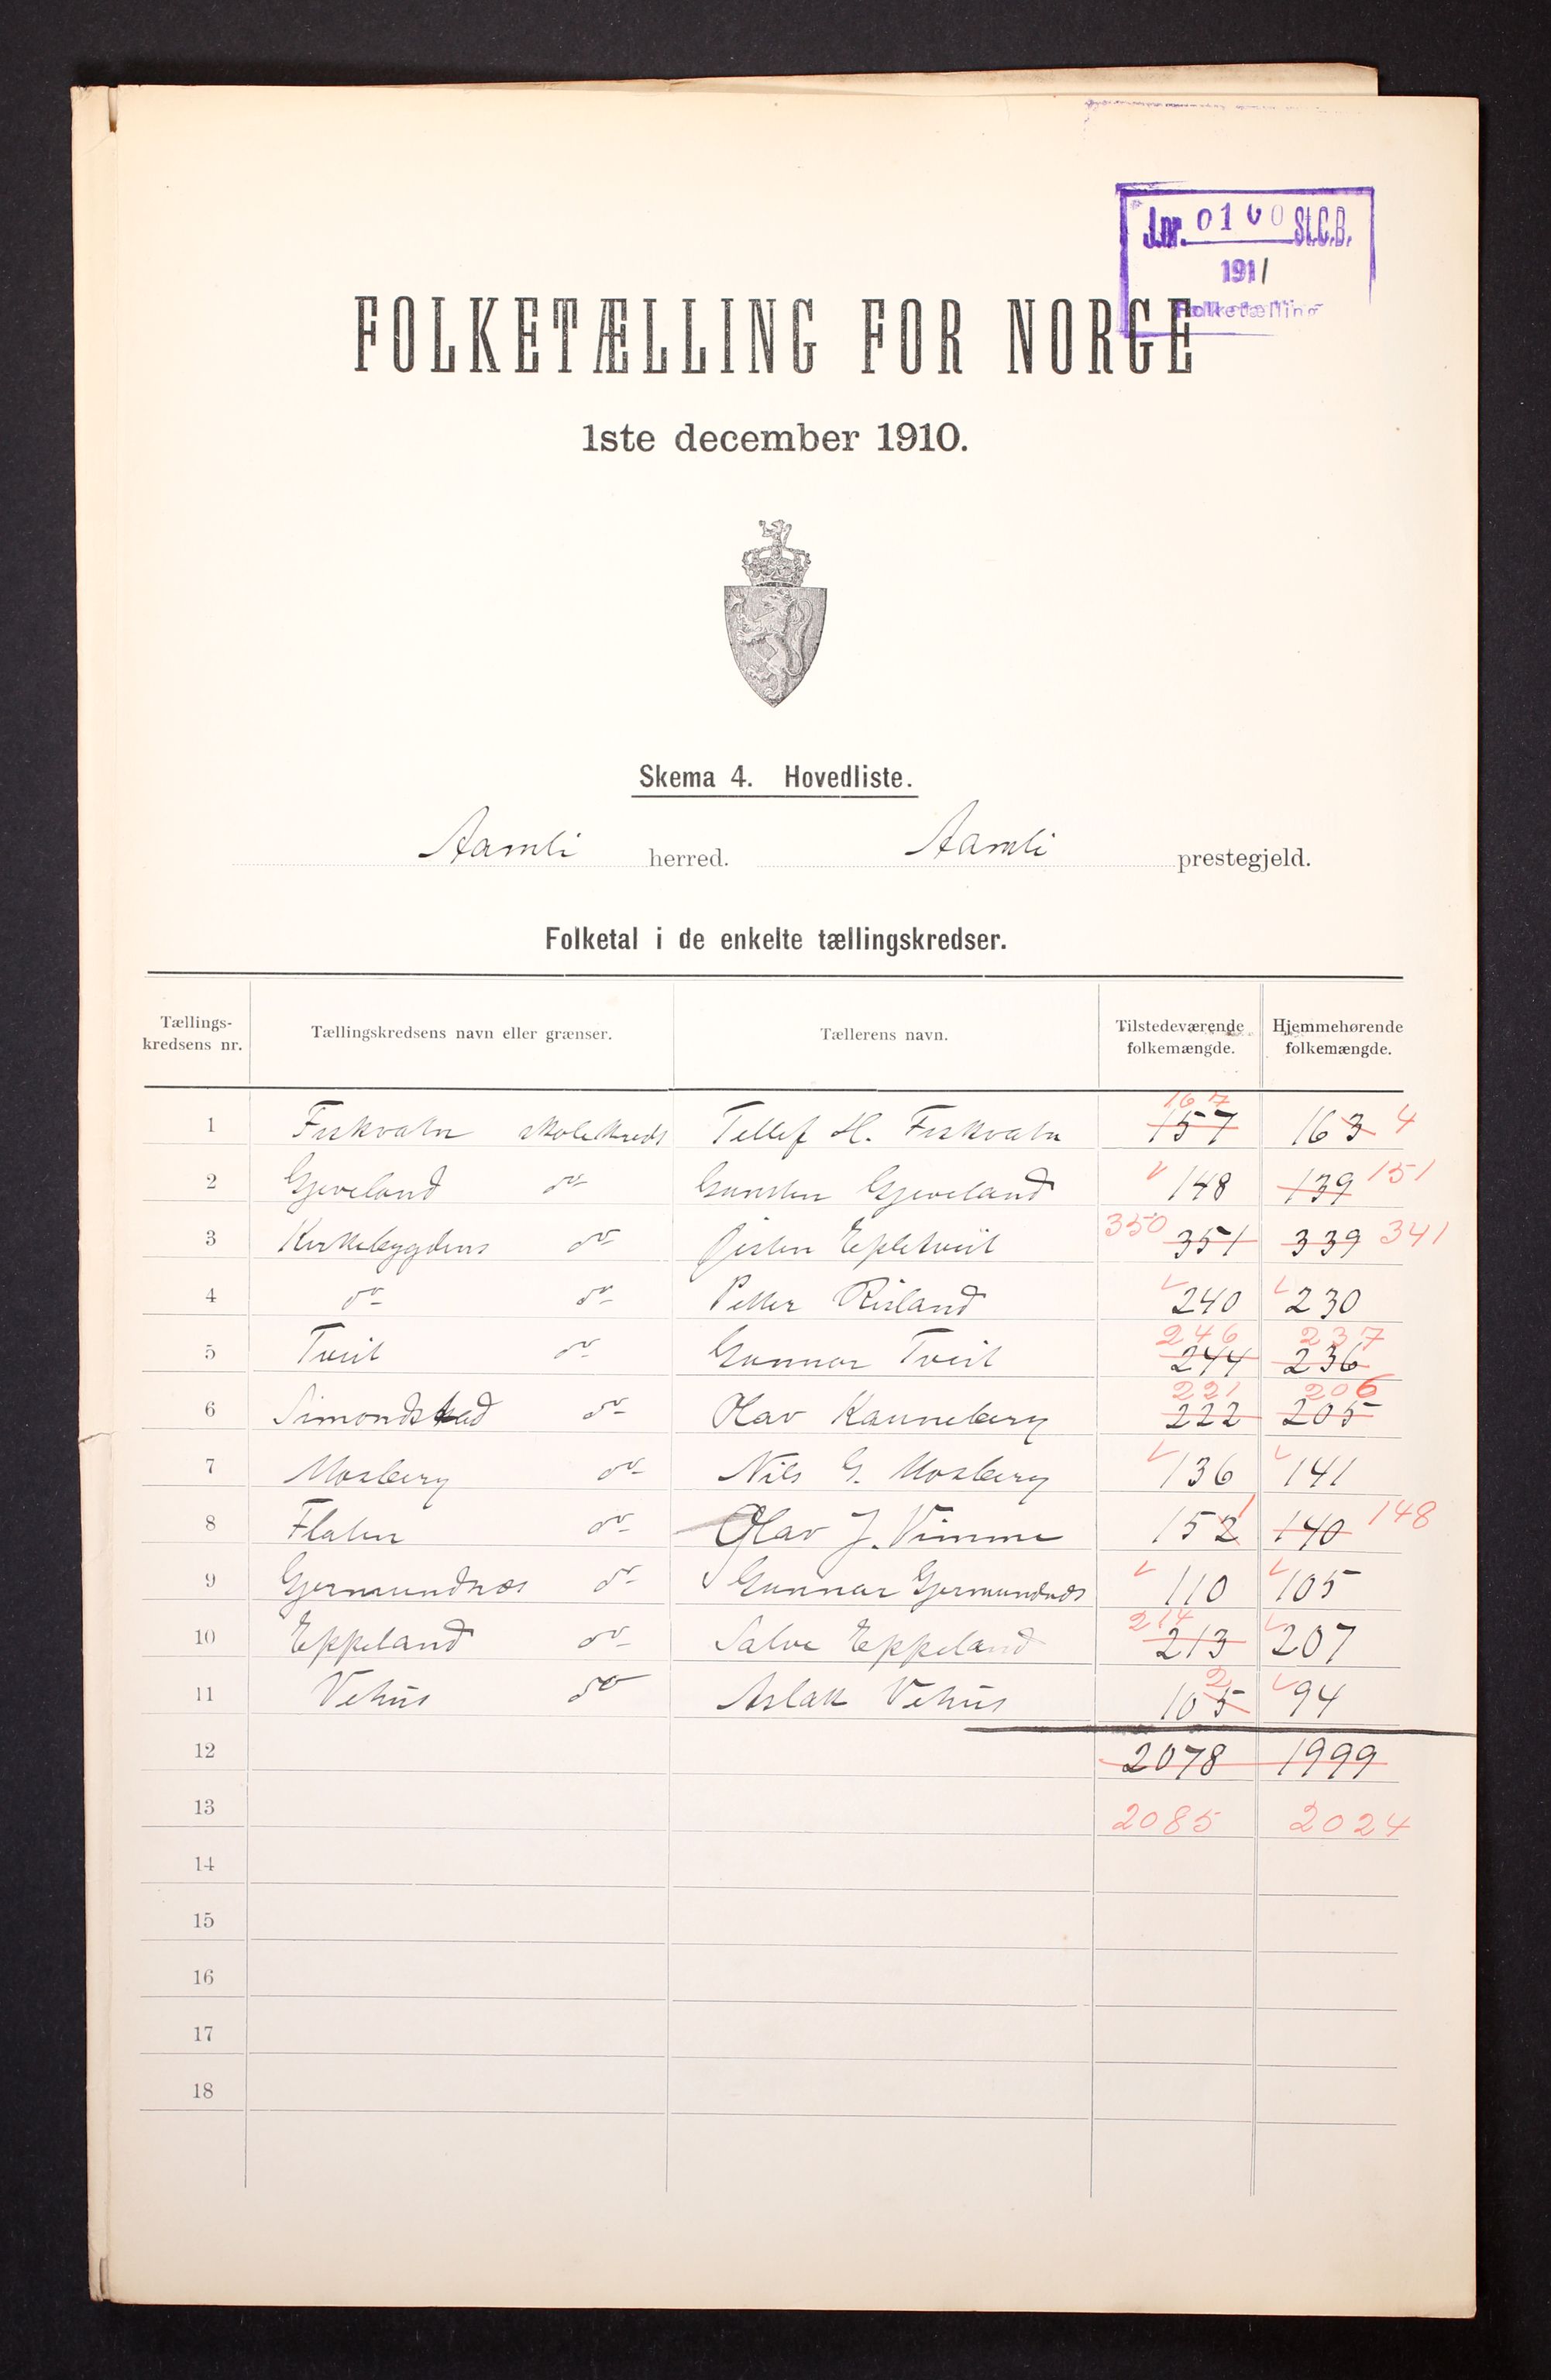 J.nr. 0100 St.C.B.
1911
Folketælling
FOLKETÆLLING FOR NORGE
1ste december 1910.
Skema 4. Hovedliste.
Aamli herred. Aamli prestegjeld.
Folketal i de enkelte tællingskredser.
Tællings-kredsens nr. Tællingskredsens navn eller grænser. Tællerens navn. Tilstedeværende folkemængde. Hjemmehørende folkemængde.
1 Fiskvatn skolekreds Tellef H. Fiskvatn 157 167 163 4
2 Gjeveland do Gunsten Gjeveland 148 139 151
3 Kirkebygdens do Øisten Epletveit 350 351 339 341
4 do do Petter Risland 240 230
5 Tveit do Gunnar Tveit 246 244 237 236
6 Simondstad do Olav Kanneberg 221 222 206 205
7 Mosberg do Nils G. Mosberg 136 141
8 Flaten do Olav J. Vimme 152 1 140 148
9 Gjermundnes do Gunnar Gjermundnes 110 105
10 Eppeland do Salve Eppeland 214 213 207
11 Vehus do Aslak Vehus 105 2 94
12 2078 1999
13 2085 2024
14
15
16
17
18